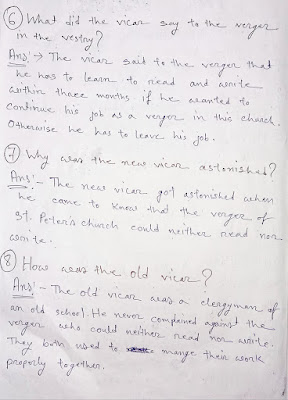 ⑥ What did the vicar say to the verger
in the vestry?
Ans:→ The vicar said to the verger that
he has to learn to read and write
within three months if he wanted to
continue his job as a verger in this church.
Otherwise he has to leave his job.
⑦ Why was the new vicar astonished?
Ans:- The new vicar got astonished when
he came to know that the verger of
St. Peter's church could neither read nor
write.
⑧ How was the old vicar?
Ans:- The old vicar was a clergyman of
an old school. He never complained against the
verger who could neither read nor write.
They both used to mange their work
properly together.